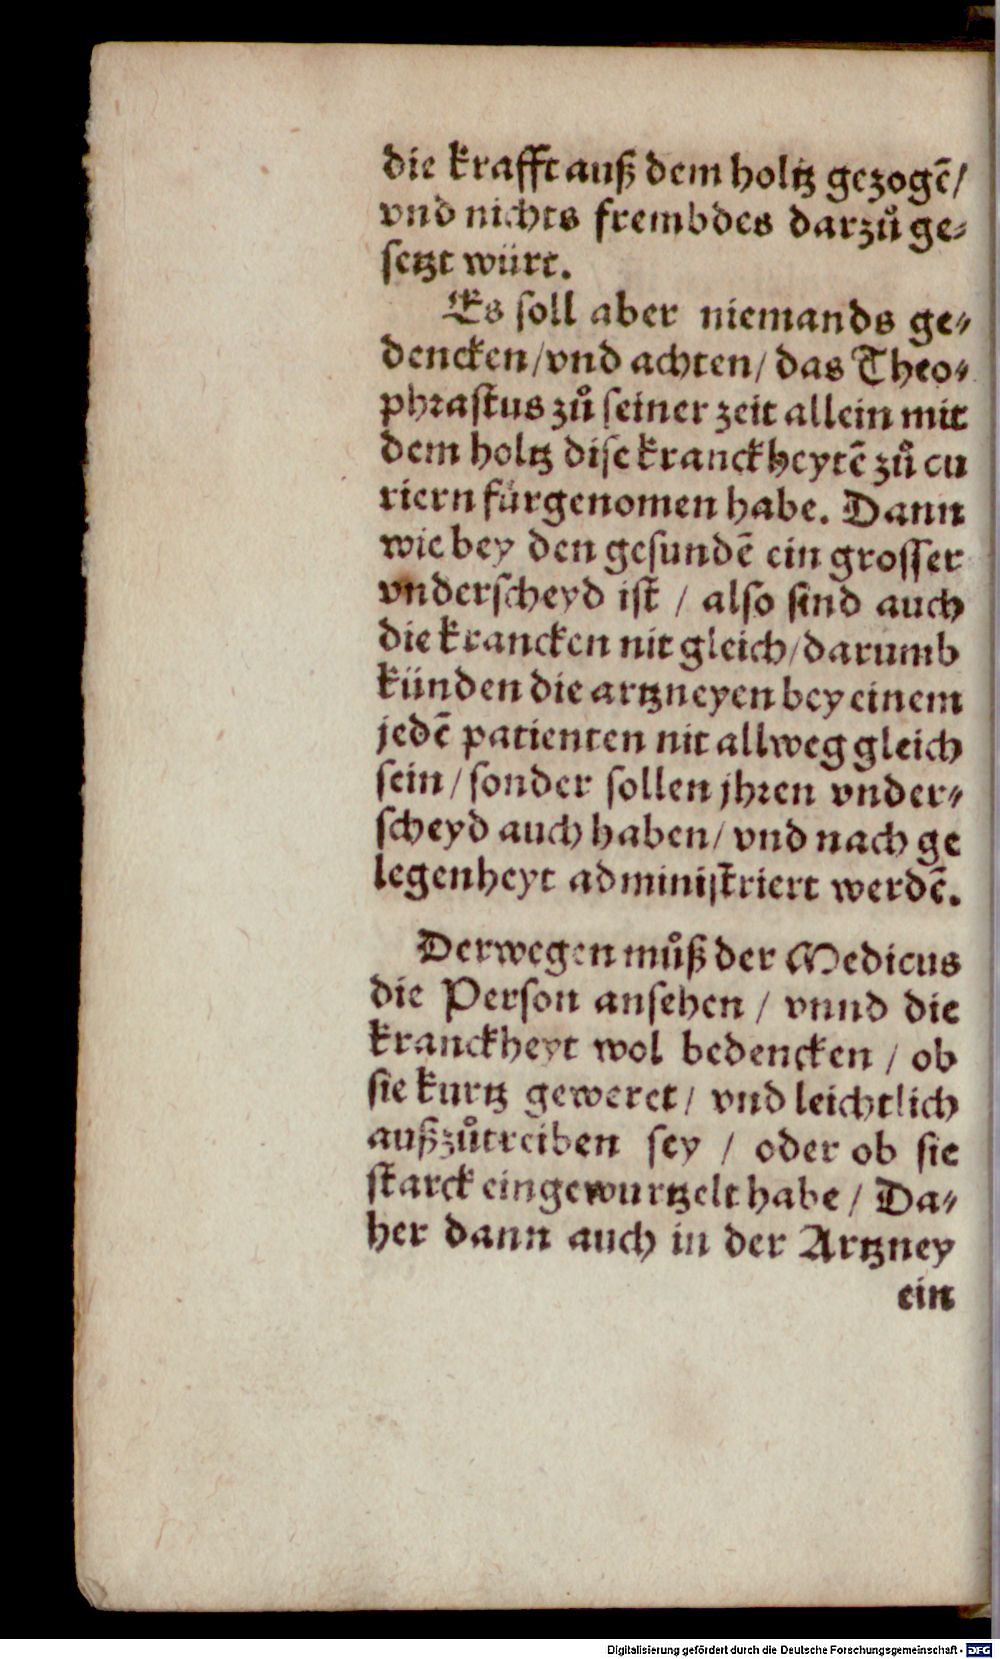 die krafft auß dem holtz gezogē/
vnd nichts frembdes darzuͦ ge⸗
setzt würt.
Es soll aber niemands ge⸗
dencken/vnd achten/ das Theo⸗
phrastus zuͦ seiner zeit allein mit
dem holtz dise kranckheytē zuͦ cu
riern fürgenomen habe. Dann
wie bey den gesundē ein grosser
vnderscheyd ist / also sind auch
die krancken nit gleich/darumb
künden die artzneyen bey einem
jedē patienten nit allweg gleich
sein/sonder sollen jhren vnder⸗
scheyd auch haben/ vnd nach ge
legenheyt administriert werdē.
Derwegen muͦß der Medicus
die Person ansehen / vnnd die
kranckheyt wol bedencken / ob
sie kurtz geweret/ vnd leichtlich
außzuͦtreiben sey / oder ob sie
starck eingewurtzelt habe/ Da⸗
her dann auch in der Artzney
ein
Digitalisierung gefördert durch die Deutsche Forschungsgemeinschaft - DFG